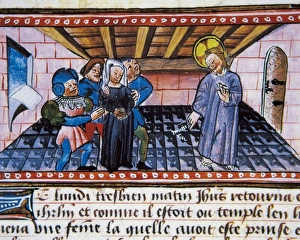 E lundi tresbien matin Jhũs retourna e
ihrlm et comme il estoit ou temple len l
mena une feme la quelle avoit este prinse e